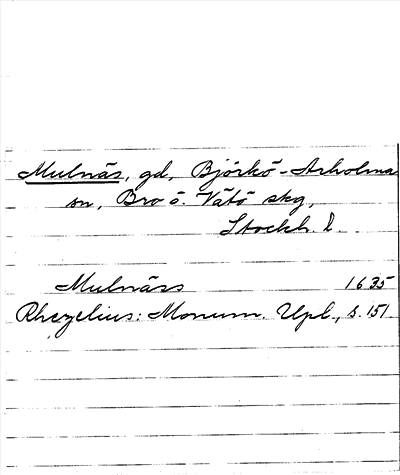 Mulnäs, gd, Björkö-Arholma
sn, Bro o. Vätö skg,
Stockh. l.
Mulnäss 1635
Rhezelius: Monum. Upl., s. 151